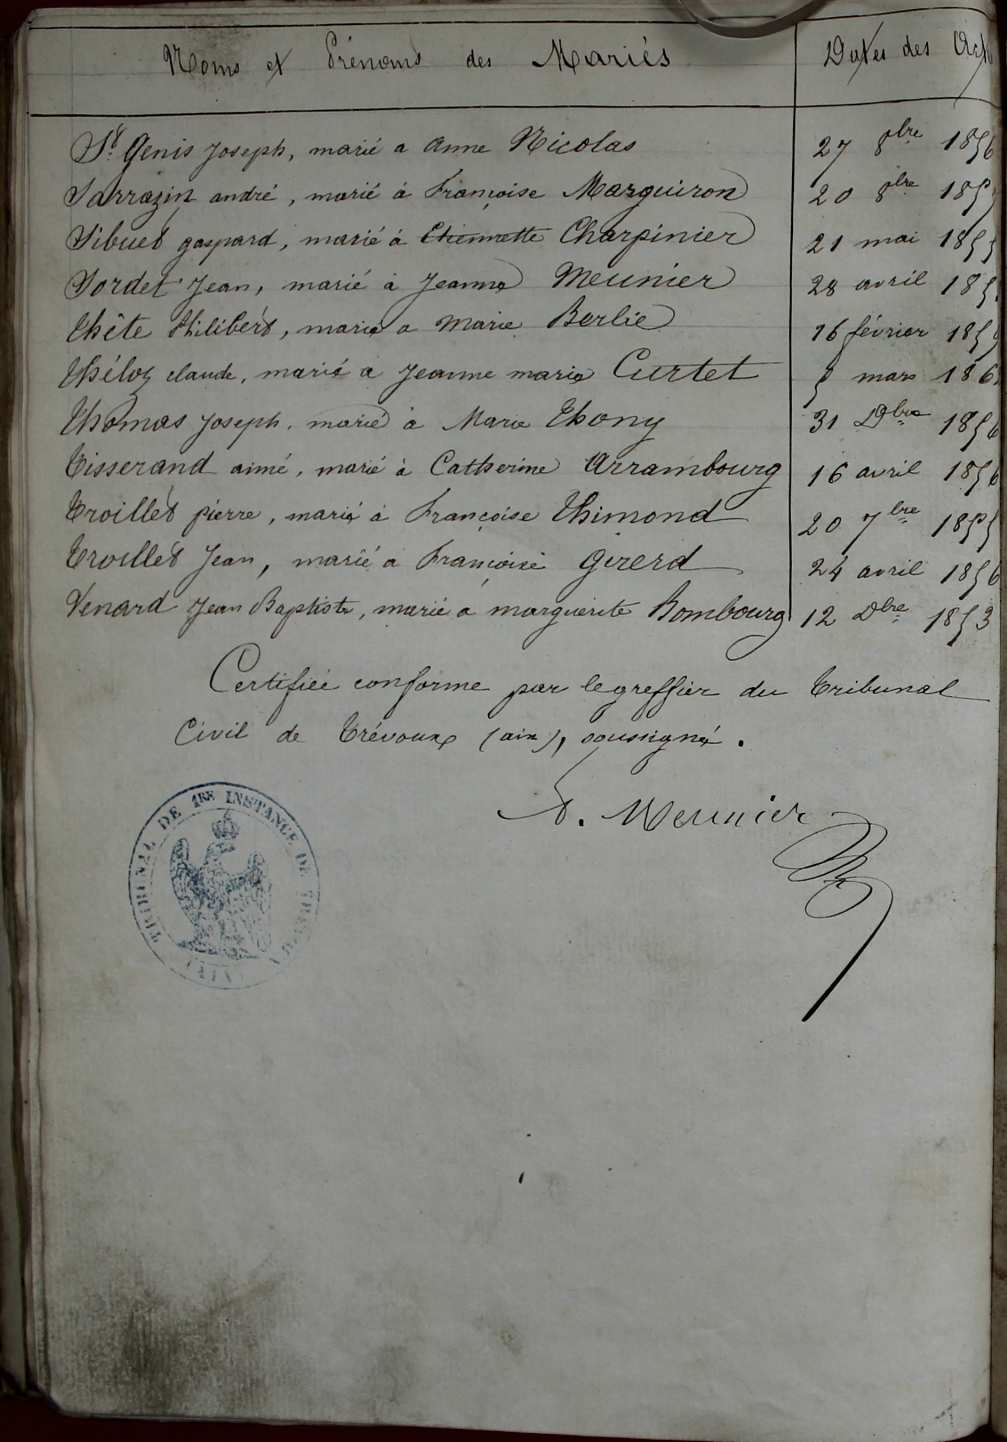 Noms et Prénoms des Mariés Dates des
St Genis Joseph, marié a anne Nicolas 27 8bre 1856
Sarrazin andré, marié à Françoise Marguiron 20 8bre
Sibuet gaspard, marié à Etiennette Charpinier 21 mai
Sordet Jean, marié à Jeanne Meunier 28 avril
Thête Philibert, marié a Marie Berlie 16 février
Théloz claude, marié a Jeanne marie Curtet mars
Thomas Joseph, marié à Marie Thony 31 Dbre 1856
Tisserand aimé, marié à Catherine Arrambourg 16 avril 1856
Troillet pierre, marié à Françoise Thimond 20 7bre 1855
Troillet Jean, marié a Françoise Girerd 24 avril 1856
Venard Jean Baptiste, marié a marguerite Bombourg 12 Dbre 1853
Certifiée conforme par le greffier du Tribunal
Civil de Trévoux (ain), soussigné.
Meunier
TRIBUNAL DE 1RE INSTANCE DE